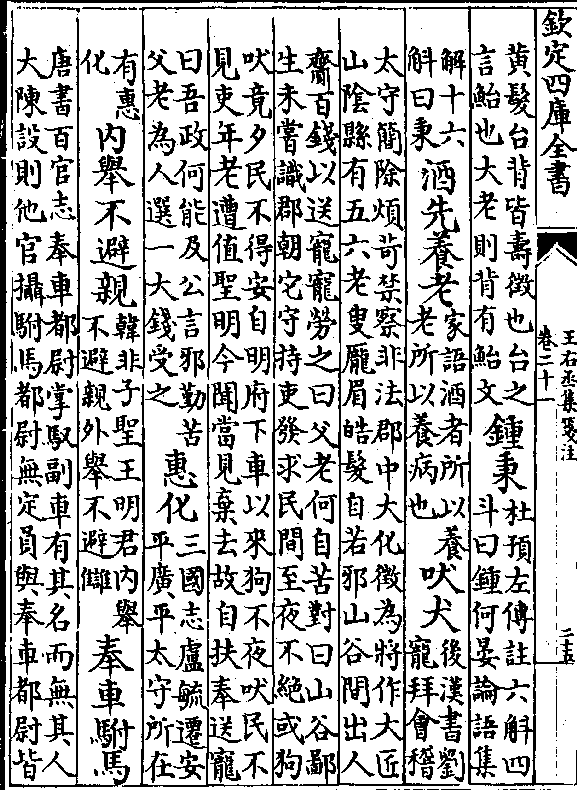 欽定四庫全書
王右丞集箋注
卷二十一
二十五
黄髮台背皆壽徵也台之
言鮐也大老則背有鮐文
鍾秉
杜預左傳註六斛四
斗曰鍾何晏論語集
解十六
斛曰秉
酒先養老
家語酒者所以養
老所以養病也
吠犬
後漢書劉
寵拜會稽
太守簡除煩苛禁察非法郡中大化徵為將作大匠
山陰縣有五六老叟厖眉皓髮自若邪山谷間出人
齎百錢以送寵寵勞之曰父老何自苦對曰山谷鄙
生未嘗識郡朝它守持吏發求民間至夜不絶或狗
吠竟夕民不得安自明府下車以來狗不夜吠民不
見吏年老遭值聖明今聞當見棄去故自扶奉送寵
曰吾政何能及公言邪勤苦
父老為人選一大錢受之
惠化
三國志盧毓遷安
平廣平太守所在
有惠
化
內舉不避親
韓非子聖王明君内舉
不避親外舉不避讎
奉車駙馬
唐書百官志奉車都尉掌馭副車有其名而無其人
大陳設則他官攝駙馬都尉無定員與奉車都尉皆